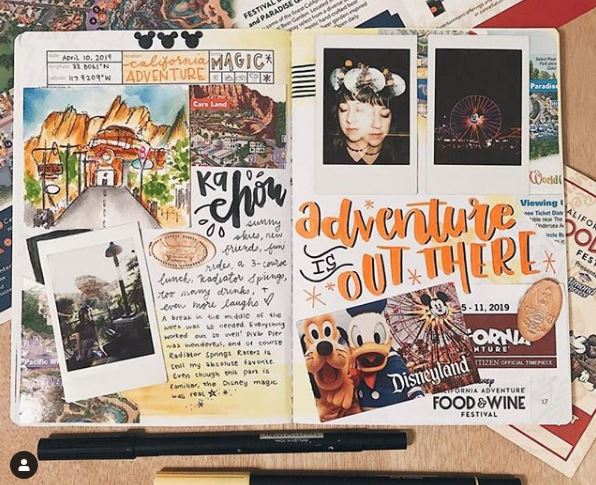 FESTIVAL
and PARADISE G
date: April 10, 2019
longitude: 33.8061°N
latitude: 117.9209°W
location:
California
ADVENTURE
MAGIC*
Cars Land
Ka
chow
sunny
skies, new
friends, fun
rides, a 3-course
lunch, Radiator Springs,
too many drinks, +
even more laughs ♡
A break in the middle of the
week was so needed. Everything
worked out so well! Pixar Pier
was wonderful, and of course
Radiator Springs Racers is
still my absolute favorite.
Even though this park is
familiar, the Disney magic
was real
Pacific W
adventure
IS
OUT THERE
Paradise
World
Viewing
Disneyland
5 - 11, 2019
CITIZEN OFFICIAL TIMEPIECE
Disney
CALIFORNIA ADVENTURE
FOOD & WINE
FESTIVAL
17
CALIFORNIA
FOOD